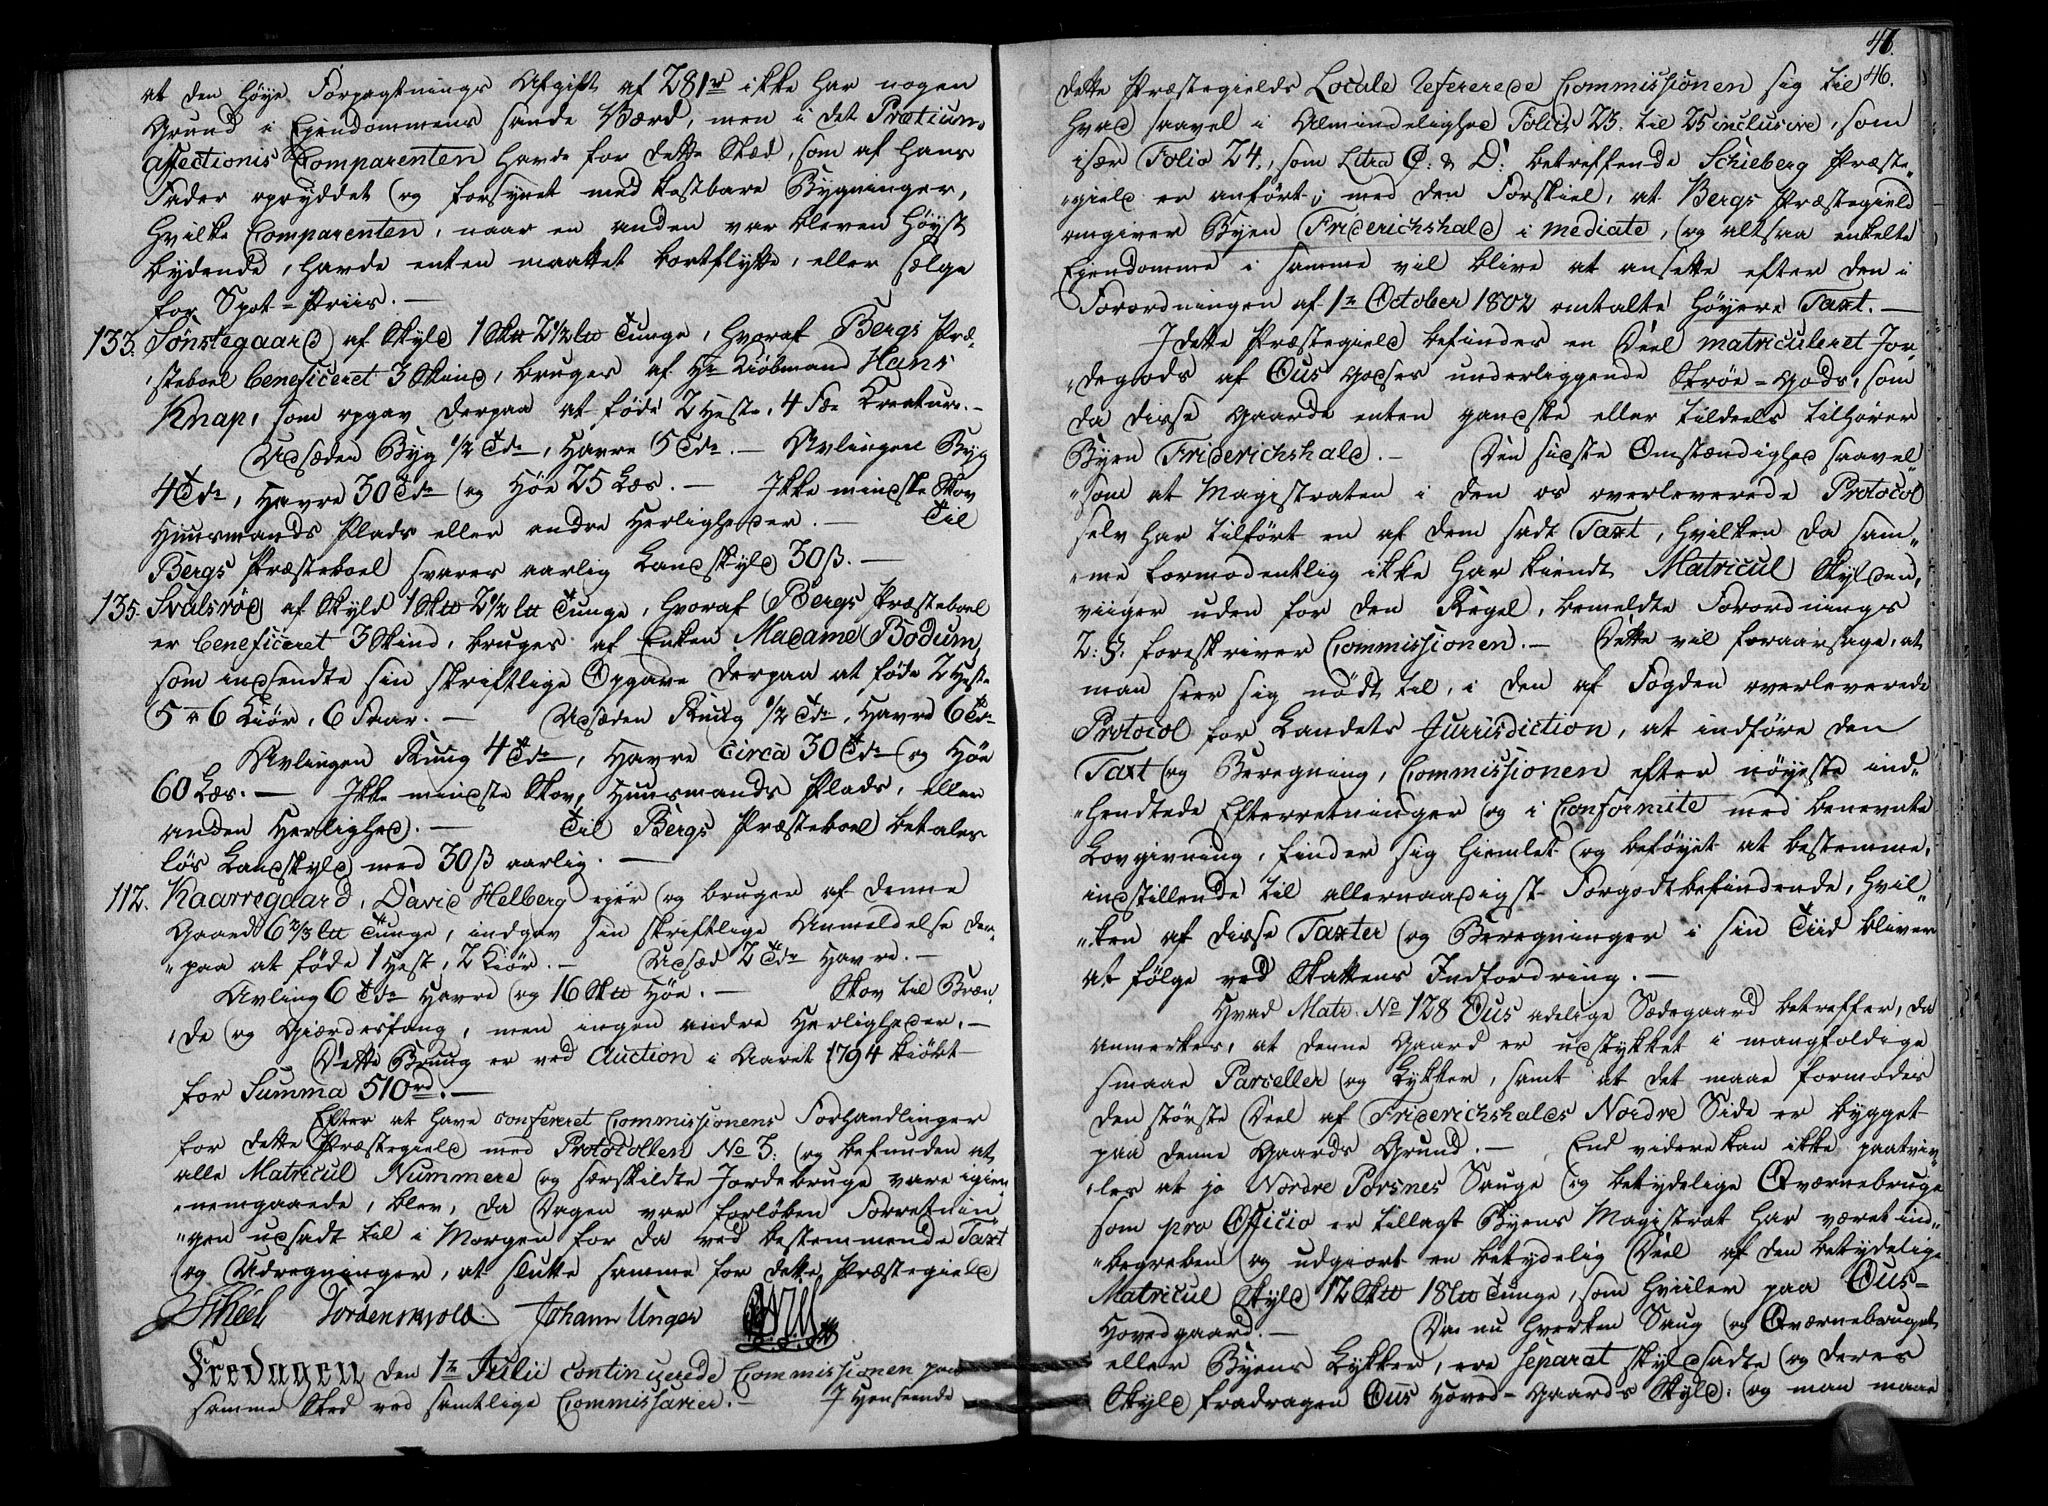 at den høye Forpagtnings Afgift af 281 rd ikke har nogen
Grund i Ejendommens sande Værd, men i det Prætium
affectionis Comparenten havde for dette Stæd, som af hans
Fader opryddet og forsynet med kostbare Bygninger,
hvilke Comparenten, naar en anden var bleven høyst
bydende, havde enten maattet bortflytte, eller sælge
for Spot-Priis. —
133. Sønstegaard af Skyld 1 Skll 2 1/2 lll Tunge, hvoraf Bergs Præ-
"steboel beneficeret 3 Skind, bruges af Hr Kiöbmand Hans
Knap, som opgav derpaa at føde 2 Heste, 4 Fæ Creature. —
Udsæden Byg 1/2 Tdr, Havre 5 Tdr. — Avlingen Byg
4 Tdr, Havre 30 Tdr og Høe 25 Læs. — Ikke mindste Skov
Huusmands Plads eller andre Herligheder. — Til
Bergs Præsteboel svares aarlig Landskyld 30 ß. —
135. Svalsröd af Skyld 1 Skll 2 1/2 lll Tunge, hvoraf Bergs Præsteboel
er beneficeret 3 Skind, bruges af Enken Madame Bodum,
som indsendte sin skriftlige Opgave derpaa at føde 2 Heste
5 a 6 Kiør, 6 Faar. — Udsæden Ruug 1/2 Tdr, Havre 6 Tdr
Avlingen Ruug 4 Tdr, Havre circa 30 Tdr og Høe
60 Læs. — Ikke mindste Skov, Huusmands Plads, eller
anden Herlighed. — Til Bergs Præsteboel betales
løs Landskyld med 30 ß aarlig. —
112. Kaarregaard, David Helberg ejer og bruger af denne
Gaard 6 2/3 lll Tunge, indgav sin skriftlige Anmeldelse der-
"paa at føde 1 Hest, 2 Kiør. — Udsæd 2 Tdr Havre. —
Avling 6 Tdr Havre og 16 Skll Høe. — Skov til Bræn-
"de og Gierdesfang, men ingen andre Herligheder. —
Dette Bruug er ved Auction i Aaret 1794 kiöbt
for Summa 510 rd. —
Efter at have confereret Commissionens Forhandlinger
for dette Præstegield med Protocollen No 3: og befunden at
alle Matricul Nummere og særskildte Jordebruge vare igien-
"nemgaaede, blev, da Dagen var forløben Forretnin-
"gen udsadt til i Morgen for da ved bestemmende Taxt
og Udregninger, at slutte samme for dette Præstegield
Skeel Tordenskjold. Johann Unger
Fredagen den 1te Julii continuerede Commissionen paa
samme Sted ved samtlige Commissarier. — I Henseende
46.
46.
dette Præstegields Locale refererede Commissionen sig til
hvad saavel i Almindelighed Folies 23. til 25 inclusive, som
især Folio 24, som Litra C: & D: betreffende Schieberg Præste-
"gield er anført; med den Forskiel, at Bergs Præstegield
omgiver Byen Friderichshald i mediate, og altsaa enkelte
Ejendomme i samme vil blive at ansætte efter den i
Forordningen af 1te October 1802 omtalte høyere Taxt. —
I dette Præstegield befindes en Deel matriculeret Jor-
"degods af Ous Godses underliggende Strøe-Gods, som
da disse Gaarde enten gandske eller tildeels tilhører
Byen Friderichshald. — Den sidste Omstændighed saavel
"som at Magistraten i den os overleverede Protocol
selv har tilført en af dem sadt Taxt, hvilken da sam-
"me formodentlig ikke har kiendt Matricul Skylden,
viiger uden for den Regel, bemeldte Forordnings
2: §: foreskriver Commissionen. — Dette vil foraarsage, at
man seer sig nødt til, i den af Fogden overleverede
Protocol for Landets Jurisdiction, at indføre den
Taxt og Beregning, Commissionen efter nøyeste ind-
"hendtede Efterretninger og i Conformite med benevnte
Lovgivning, finder sig hiemlet og beføyet at bestemme,
indstillende til allernaadigst Forgodtbefindende, hvil-
"ken af disse Taxter og Beregninger i sin Tiid bliver
at følge ved Skattens Indfordring. —
Hvad Matr. No 128 Ous adelige Sædegaard betreffer, da
anmerkes, at denne Gaard er udstykket i mangfoldige
smaae Parceller og Lykker, samt at det maae formodes
den største Deel af Friderichshalds Nordre Side er bygget
paa denne Gaards Grund. — End videre kan ikke paatviv-
"les at jo Nordre Porsnes Sauge og betydelige Qværnebruge
som pro Officio er tillagt Byens Magistrat har været ind-
"begreben og udgiort en betydelig Deel af den betydelige
Matricul Skyld 12 Skll 18 lll Tunge, som hviler paa Ous-
Hovedgaard. — Da nu hverken Saug og Qværnebruget
eller Byens Lykker, ere separat skyldsadte og deres
Skyld fradragen Ous Hoved-Gaards Skyld; og man maae